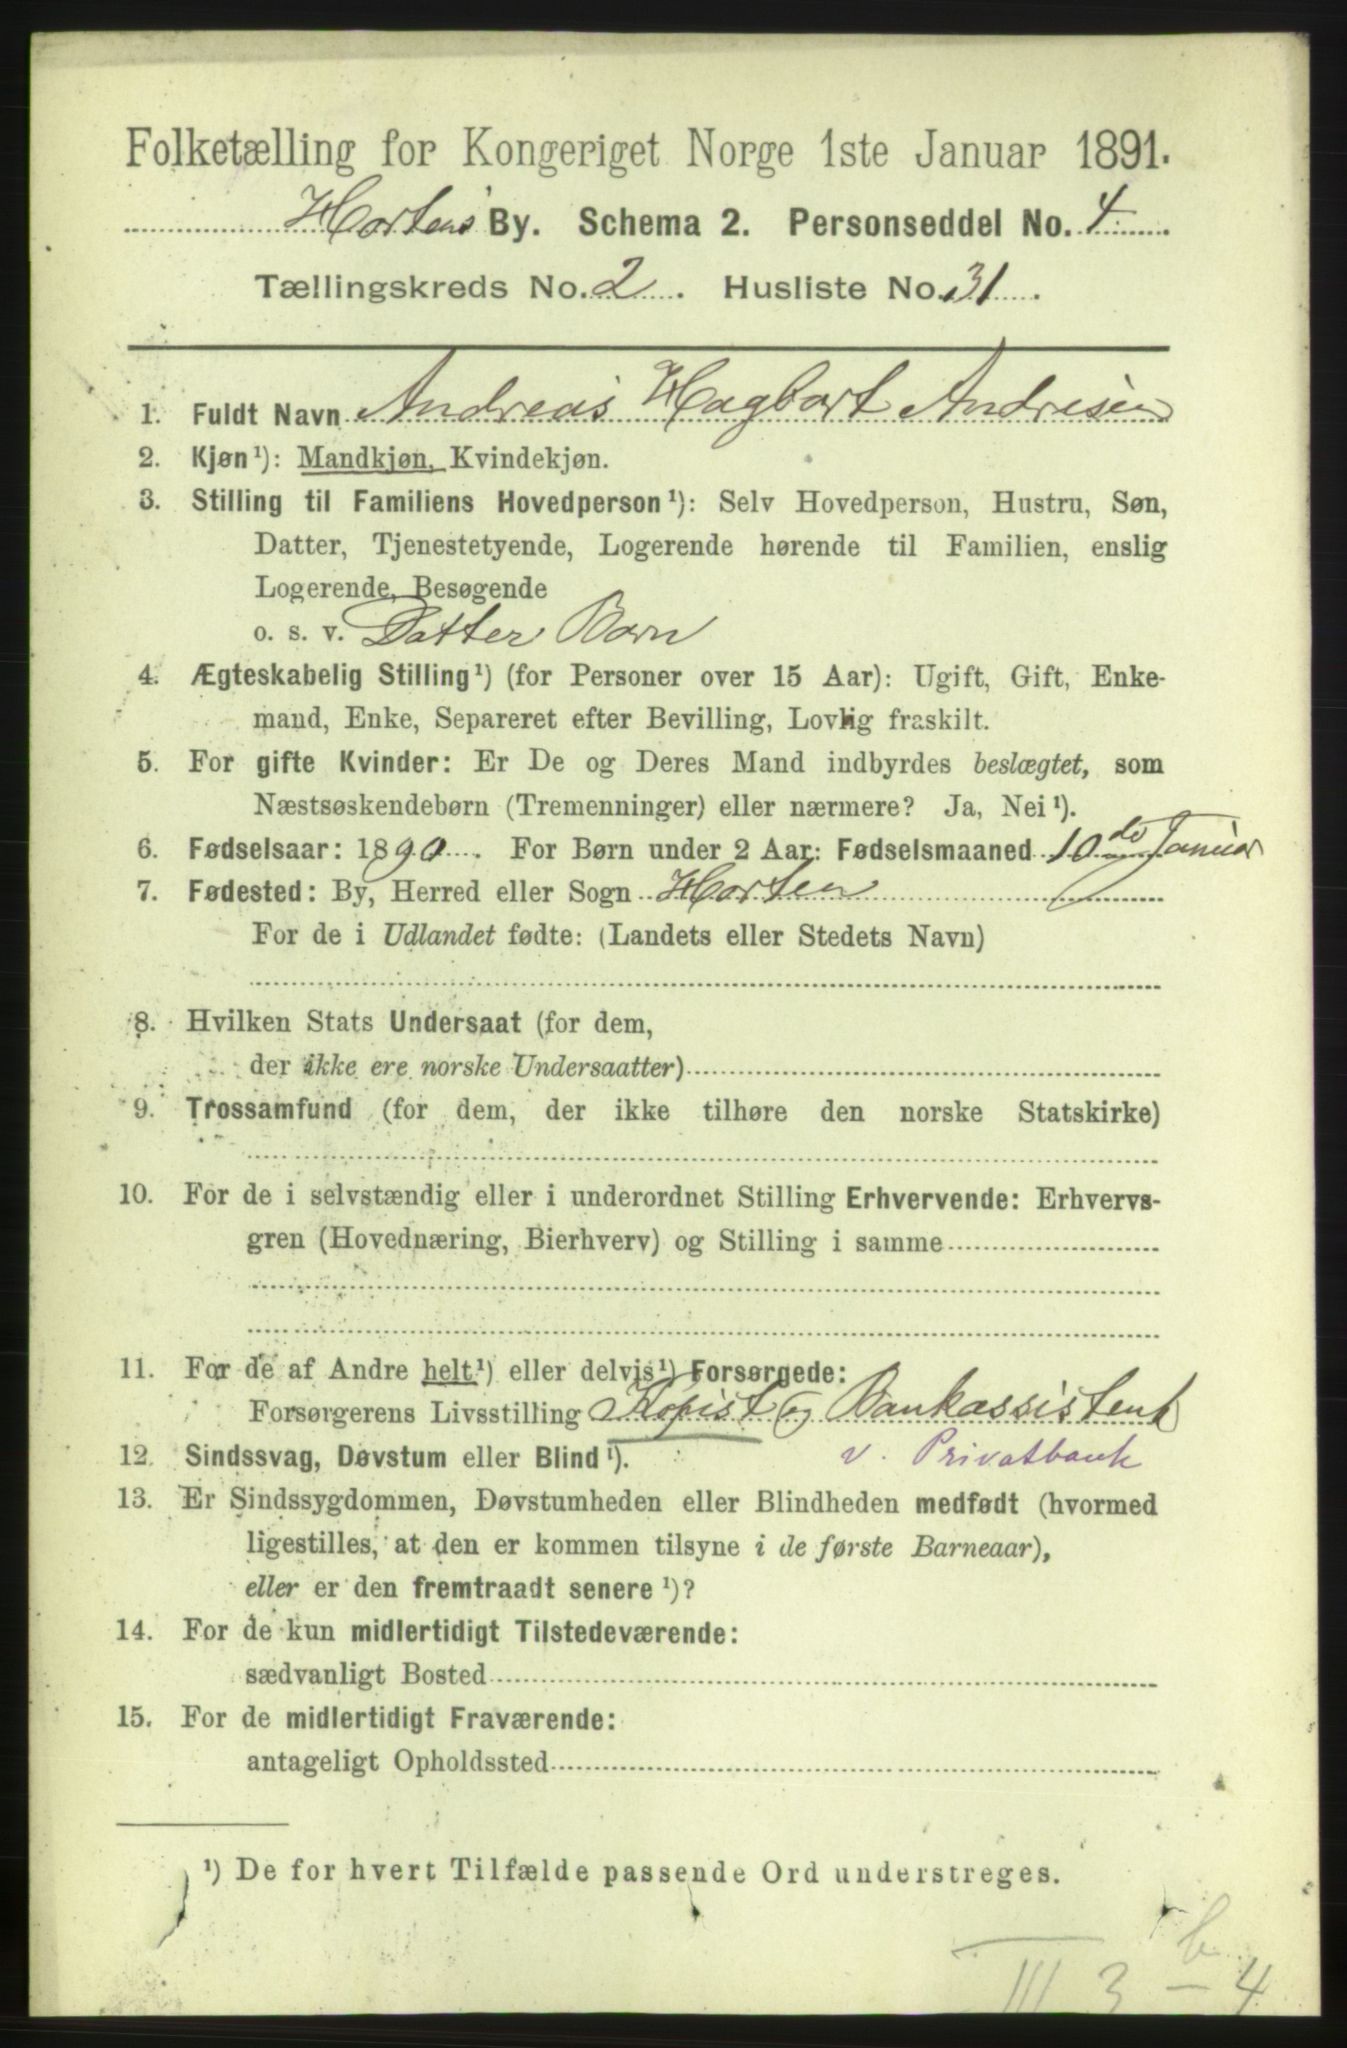 Folketælling for Kongeriget Norge 1ste Januar 1891.
Hortens By. Schema 2. Personseddel No. 4
Tællingskreds No. 2. Husliste No. 31.
1. Fuldt Navn Andreas Hagbart Andresen
2. Kjøn¹): Mandkjøn, Kvindekjøn.
3. Stilling til Familiens Hovedperson¹): Selv Hovedperson, Hustru, Søn,
Datter, Tjenestetyende, Logerende hørende til Familien, enslig
Logerende, Besøgende
o. s. v. Datter Barn
4. Ægteskabelig Stilling¹) (for Personer over 15 Aar): Ugift, Gift, Enke-
mand, Enke, Separeret efter Bevilling, Lovlig fraskilt.
5. For gifte Kvinder: Er De og Deres Mand indbyrdes beslægtet, som
Næstsøskendebørn (Tremenninger) eller nærmere? Ja, Nei¹).
6. Fødselsaar: 1890. For Børn under 2 Aar: Fødselsmaaned 10de Januar
7. Fødested: By, Herred eller Sogn Horten
For de i Udlandet fødte: (Landets eller Stedets Navn)
8. Hvilken Stats Undersaat (for dem,
der ikke ere norske Undersaatter)
9. Trossamfund (for dem, der ikke tilhøre den norske Statskirke)
10. For de i selvstændig eller i underordnet Stilling Erhvervende: Erhvervs-
gren (Hovednæring, Bierhverv) og Stilling i samme
11. For de af Andre helt¹) eller delvis¹) Forsørgede:
Forsørgerens Livsstilling Kopist og Bankassistent
v. Privatbank
12. Sindssvag, Døvstum eller Blind¹).
13. Er Sindssygdommen, Døvstumheden eller Blindheden medfødt (hvormed
ligestilles, at den er kommen tilsyne i de første Barneaar),
eller er den fremtraadt senere¹)?
14. For de kun midlertidigt Tilstedeværende:
sædvanligt Bosted
15. For de midlertidigt Fraværende:
antageligt Opholdssted
¹) De for hvert Tilfælde passende Ord understreges.
b
III 3 - 4